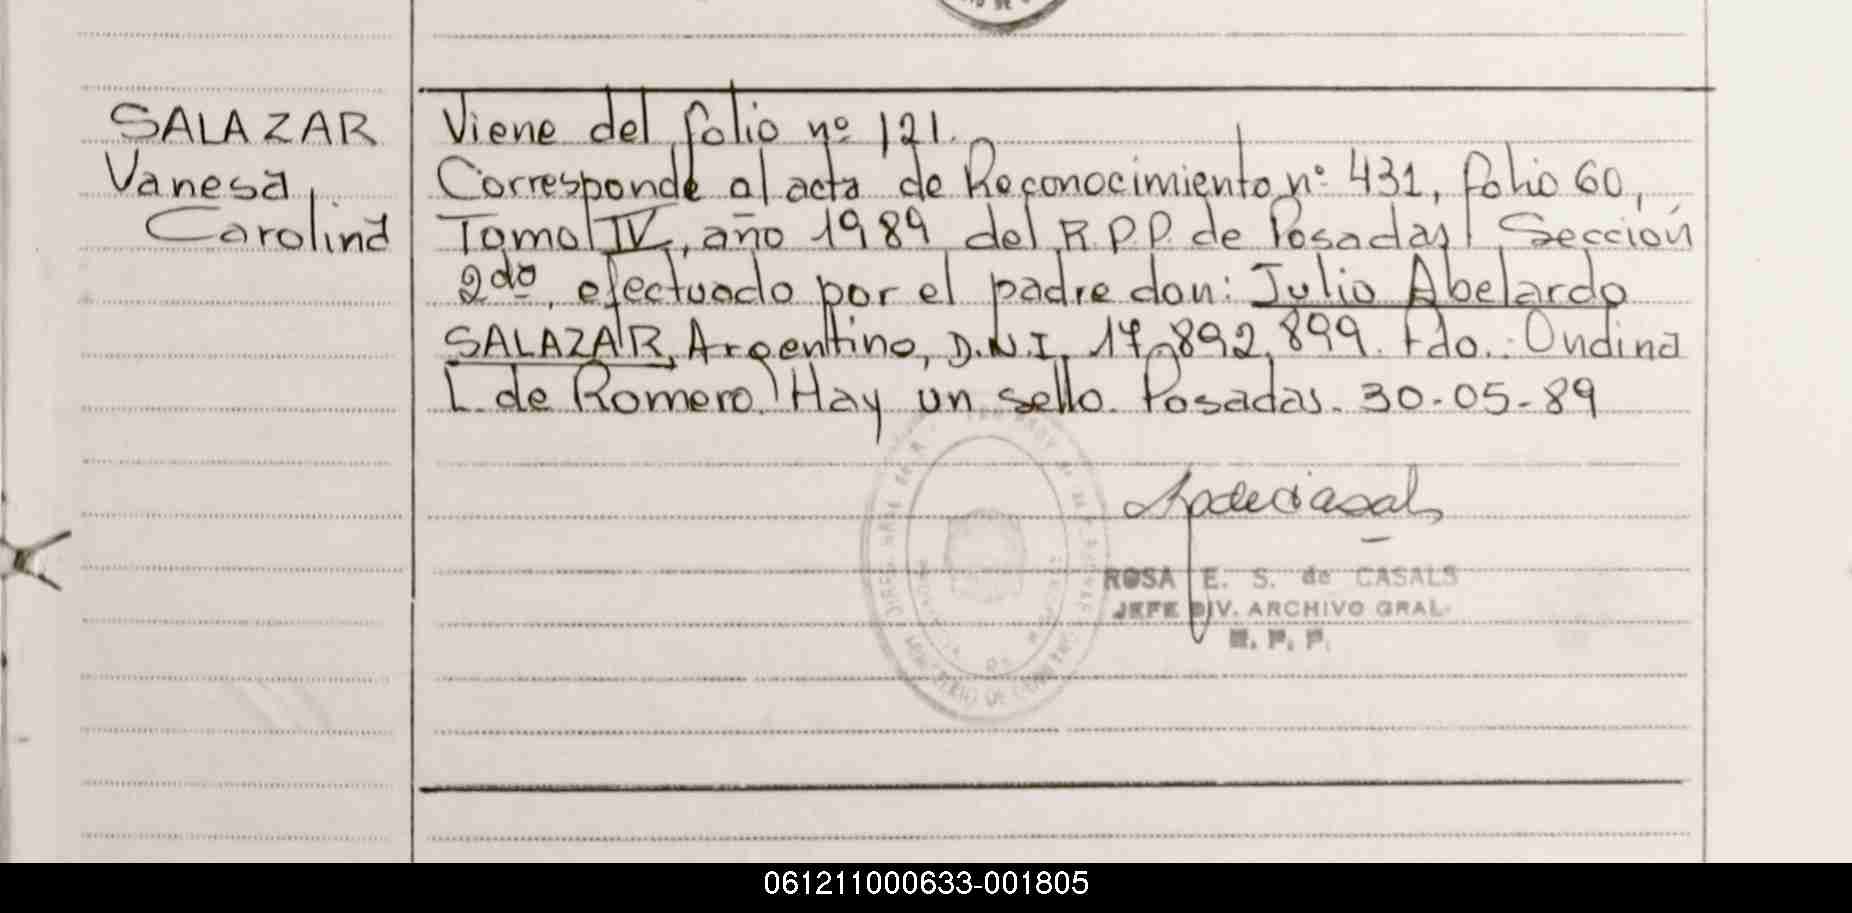 SALAZAR
Vanesa
Carolina
Viene del folio nº 121.
Corresponde al acta de Reconocimiento nº 431, folio 60,
Tomo IV, año 1989 del R.P.P. de Posadas, Sección
2do, efectuado por el padre don: Julio Abelardo
SALAZAR, Argentino, D.N.I. 17.892.899. Fdo.: Ondina
L. de Romero. Hay un sello. Posadas. 30-05-89
ROSA E. S. de CASALS
JEFE DIV. ARCHIVO GRAL.
R. P. P.
061211000633-001805